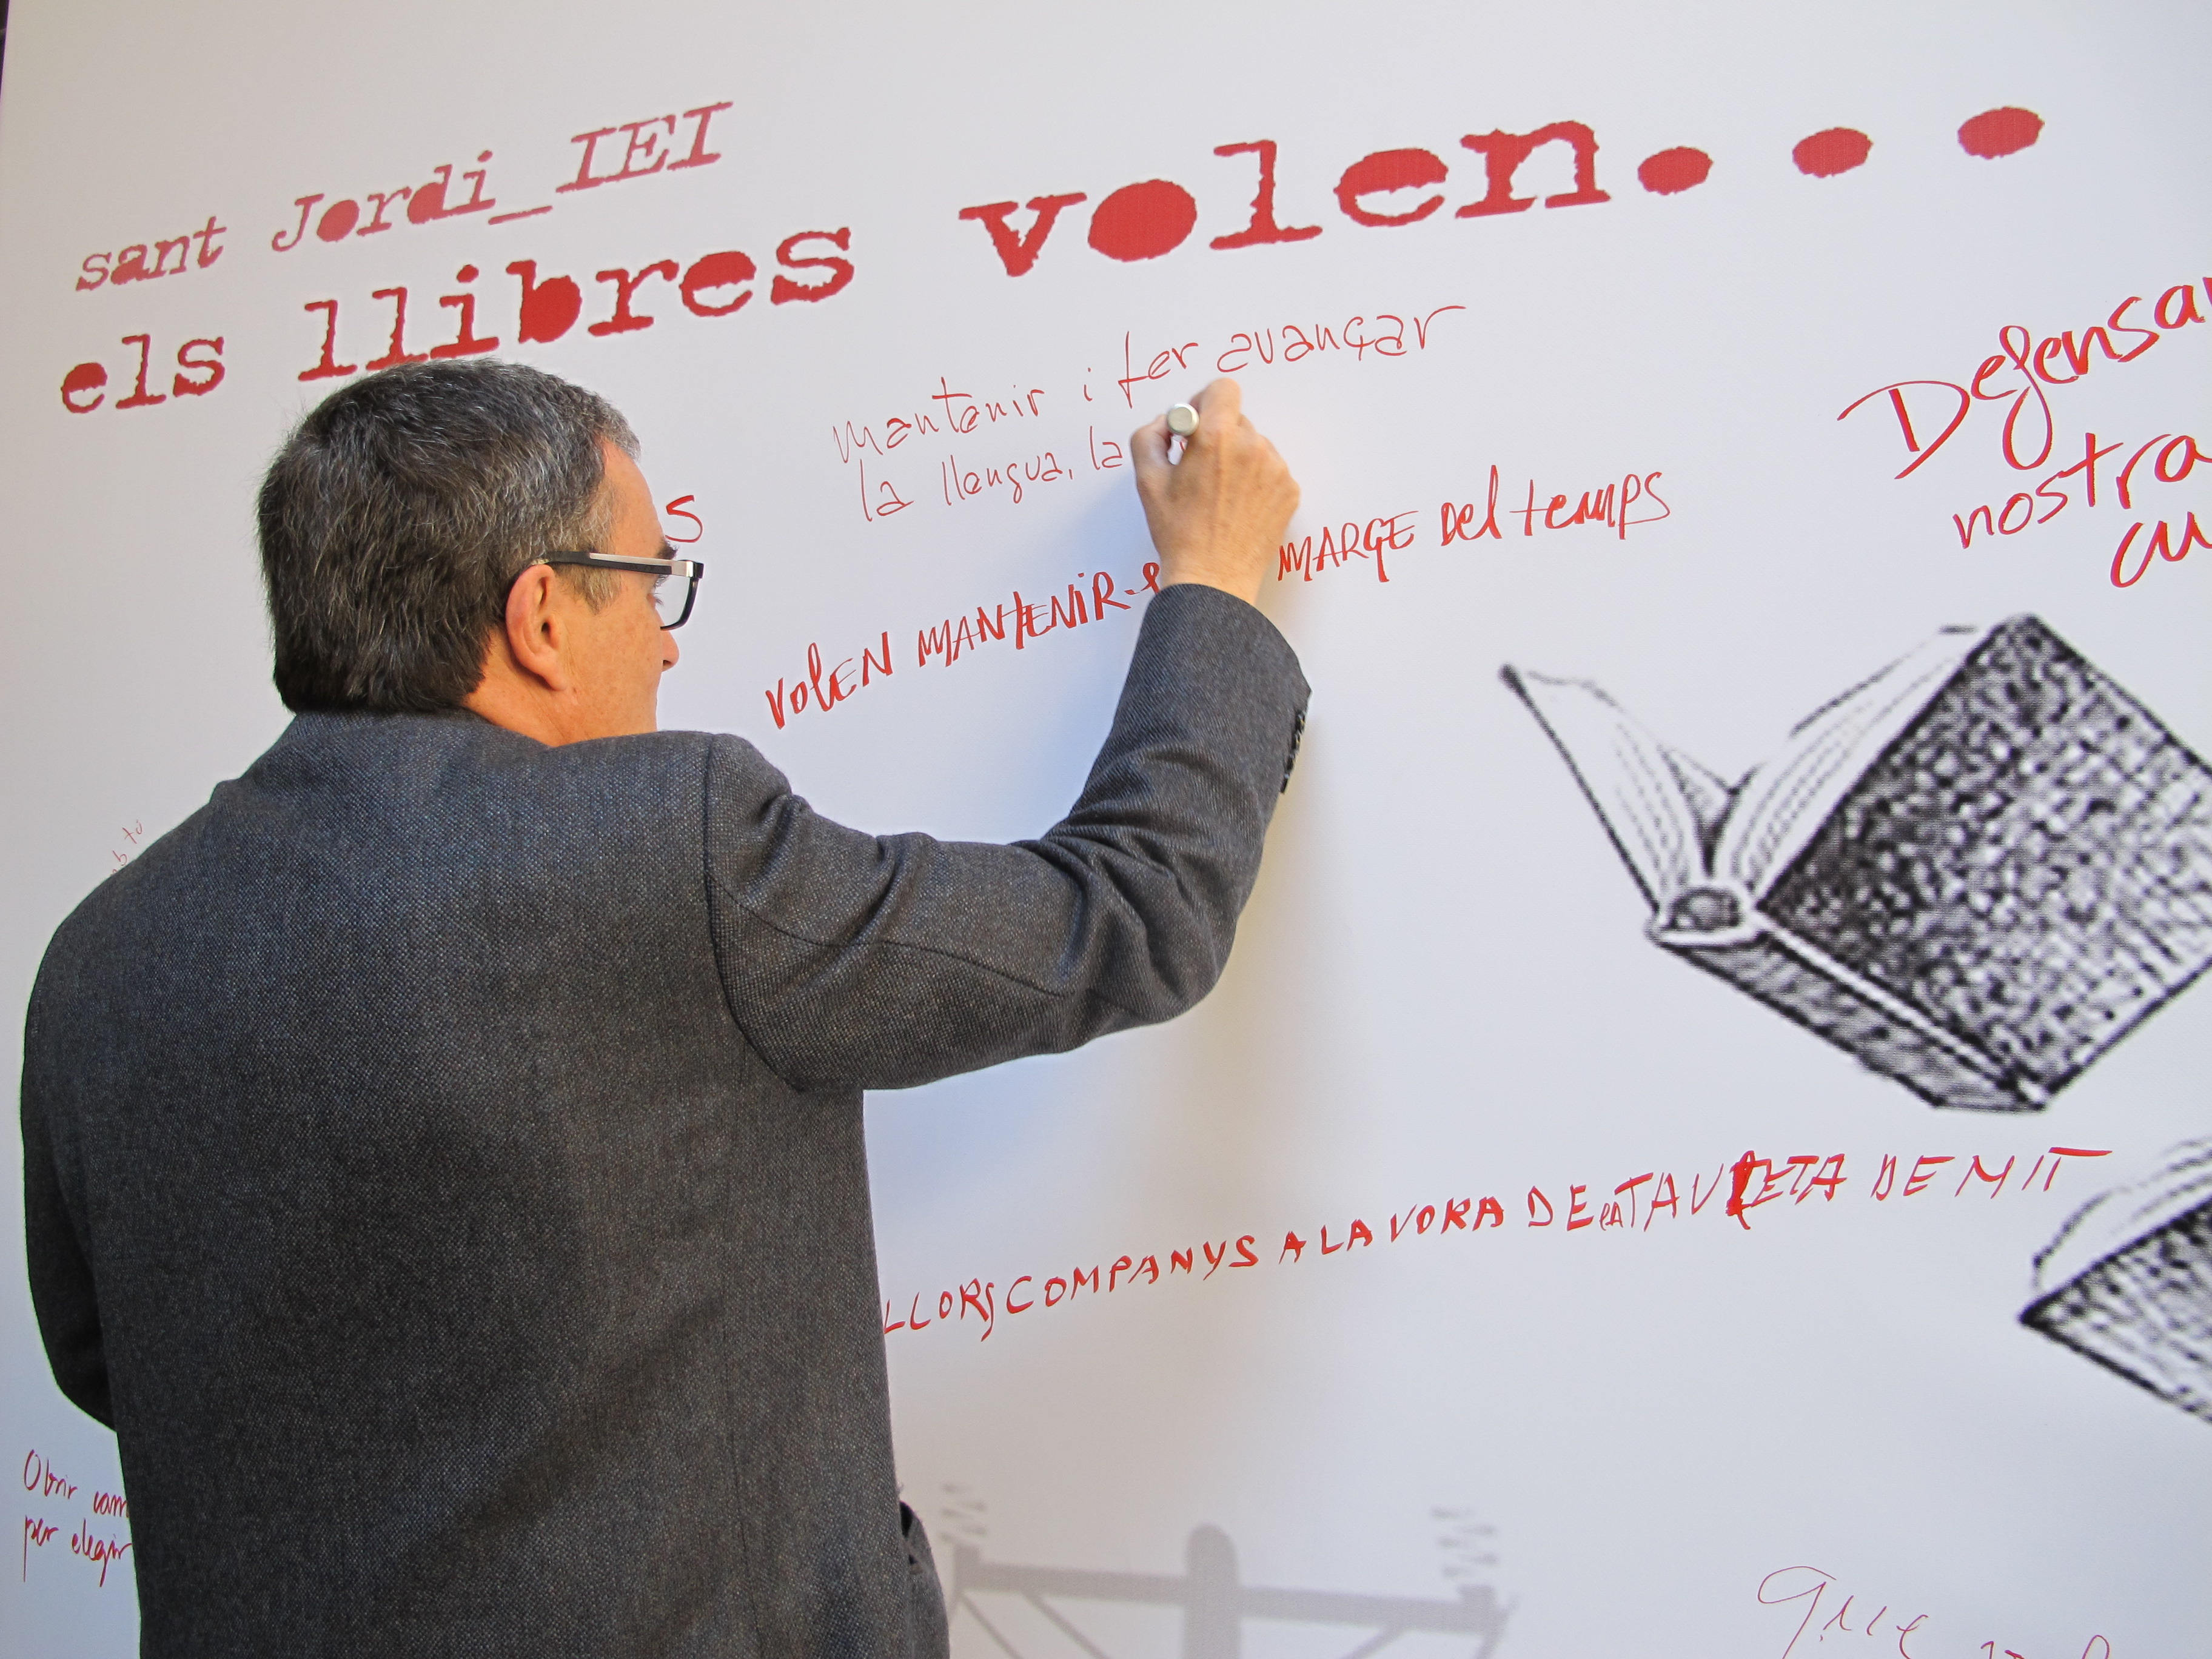 sant Jordi_IEI
els llibres volen...
mantenir i fer avançar
la llengua, la
VOLEN MANTENIR-s
MARGE Del temps
Defensar
nostra
cu
s
LLORS COMPANYS A LA VORA DE LA TAULETA DE NIT
Obrir cam
per elegir